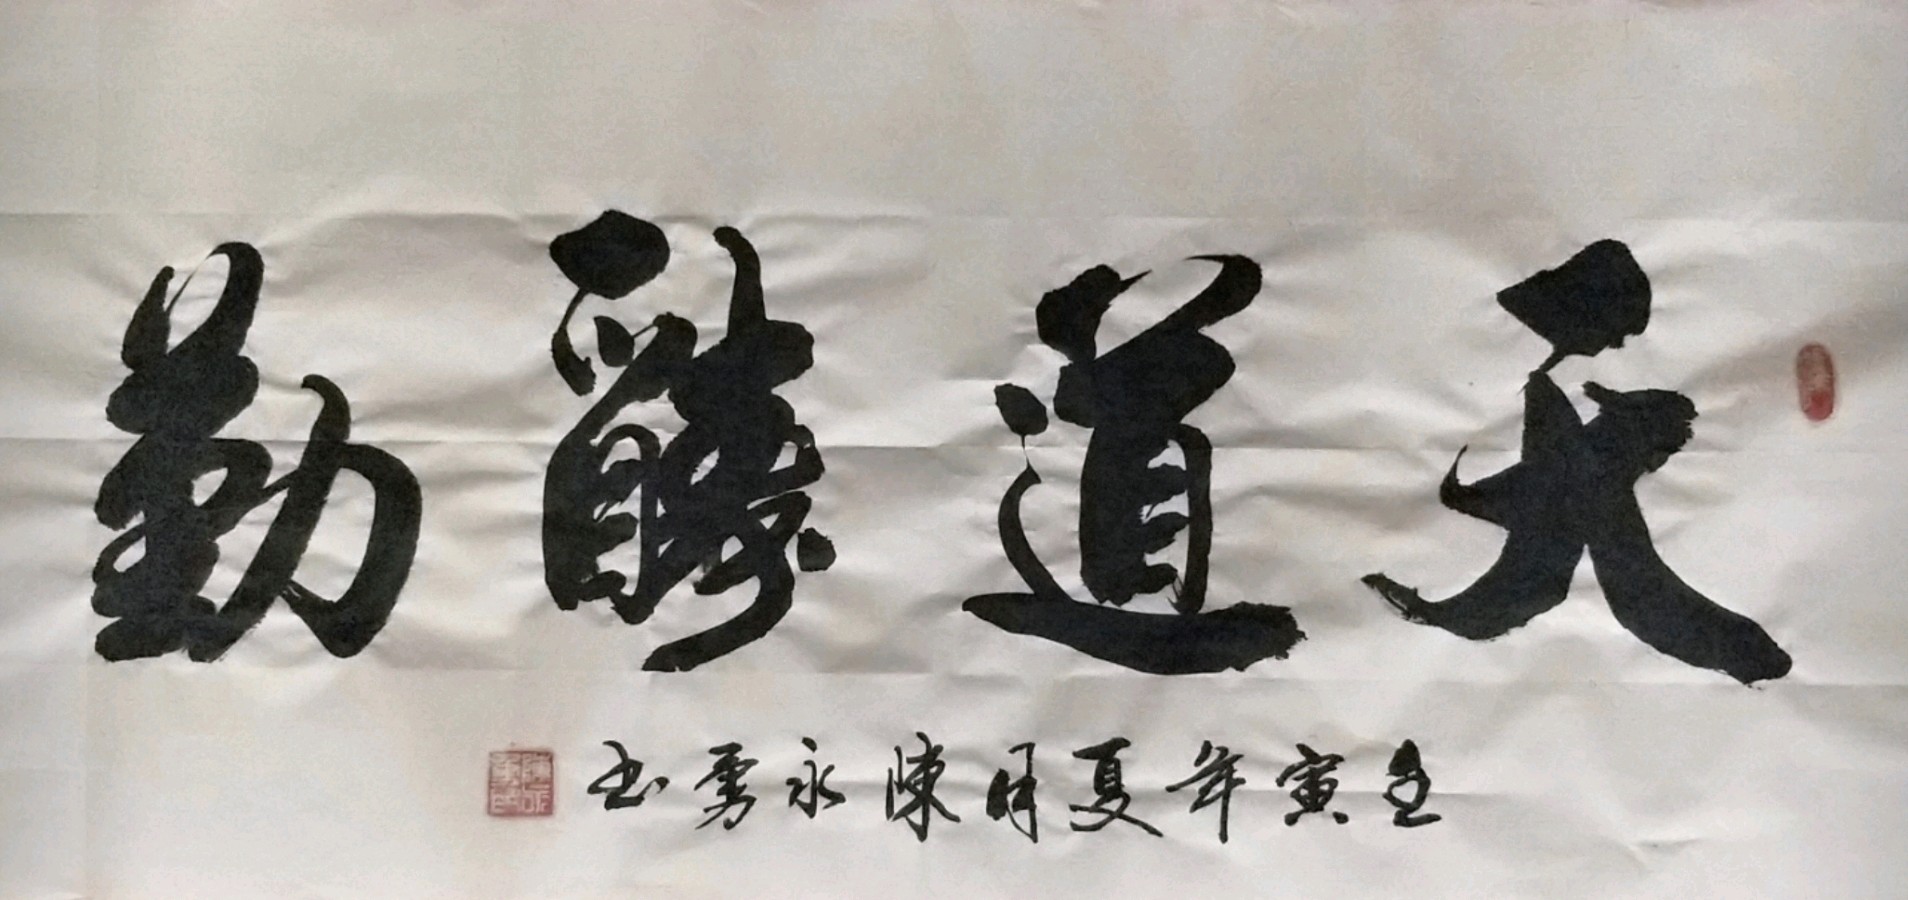 天道酬勤
壬寅年夏月陳永勇书